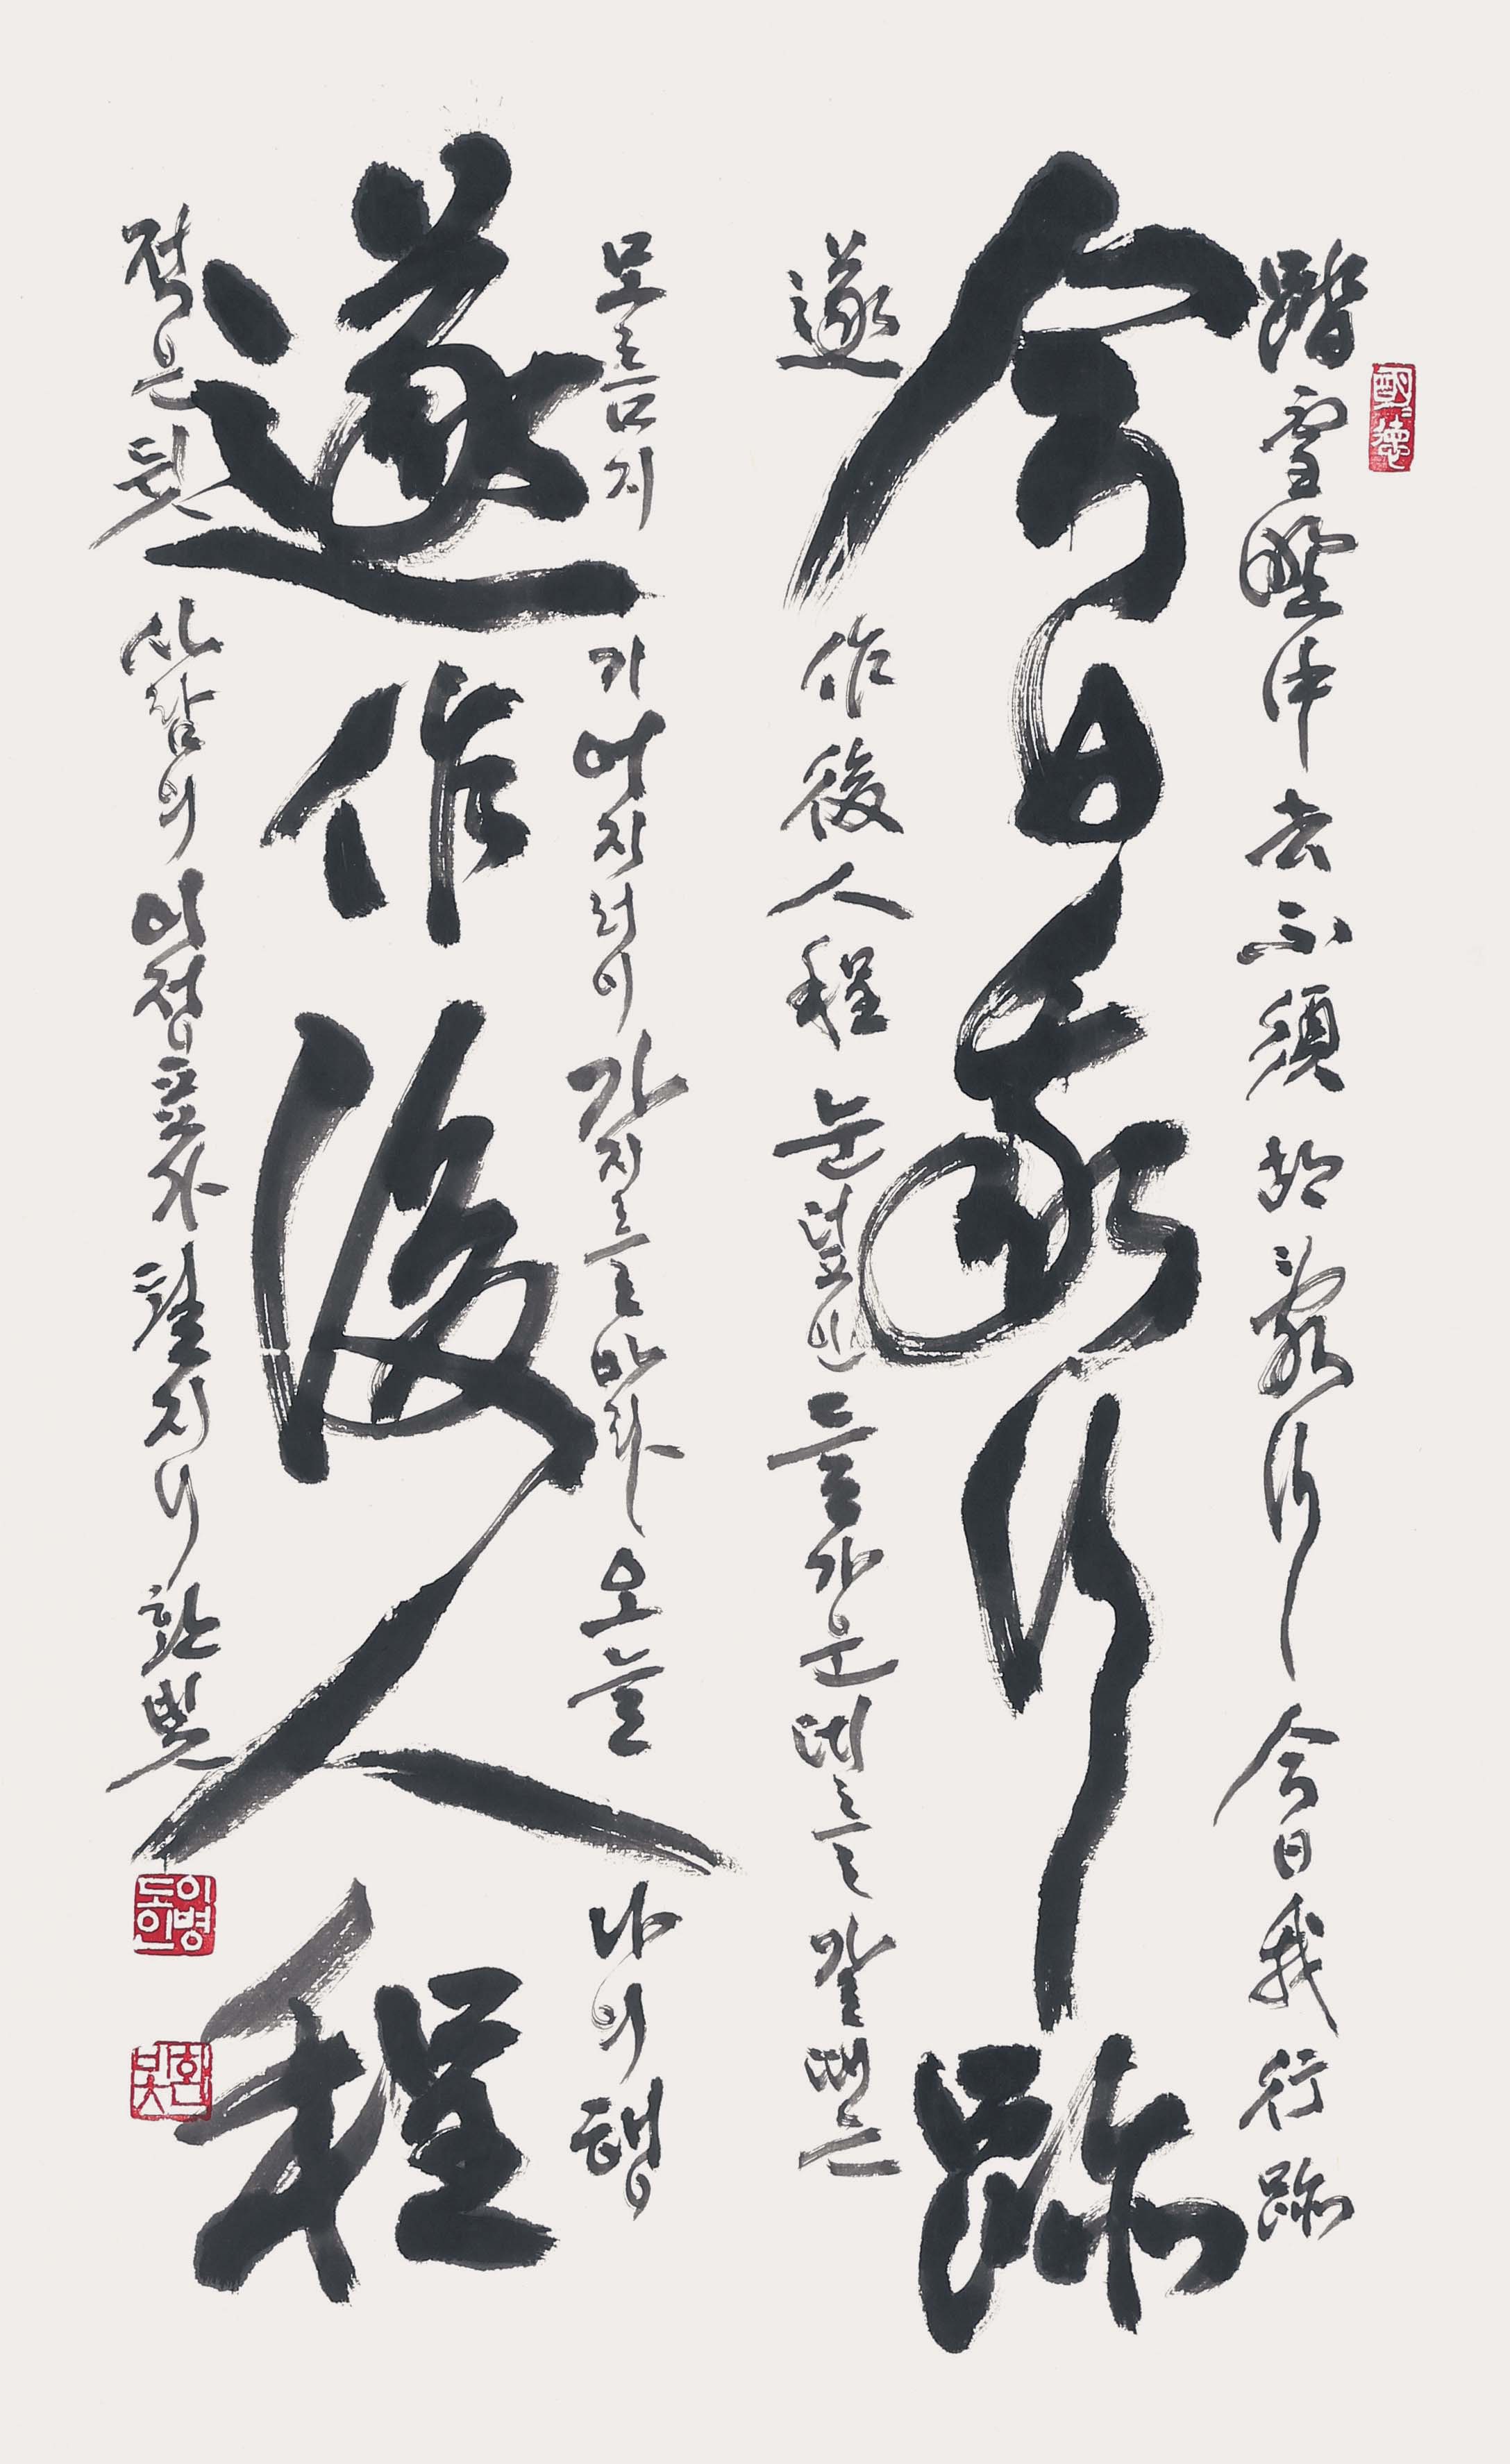 踏雪野中去不須胡亂行今日我行跡
今日我行跡
遂作後人程 눈덮인들가운데를갈때는
모름지기어지러이걷지를마라 오늘 나의행
遂作後人程
적은뒷사람의이정표가될지니 한빛
이병도인
한빛